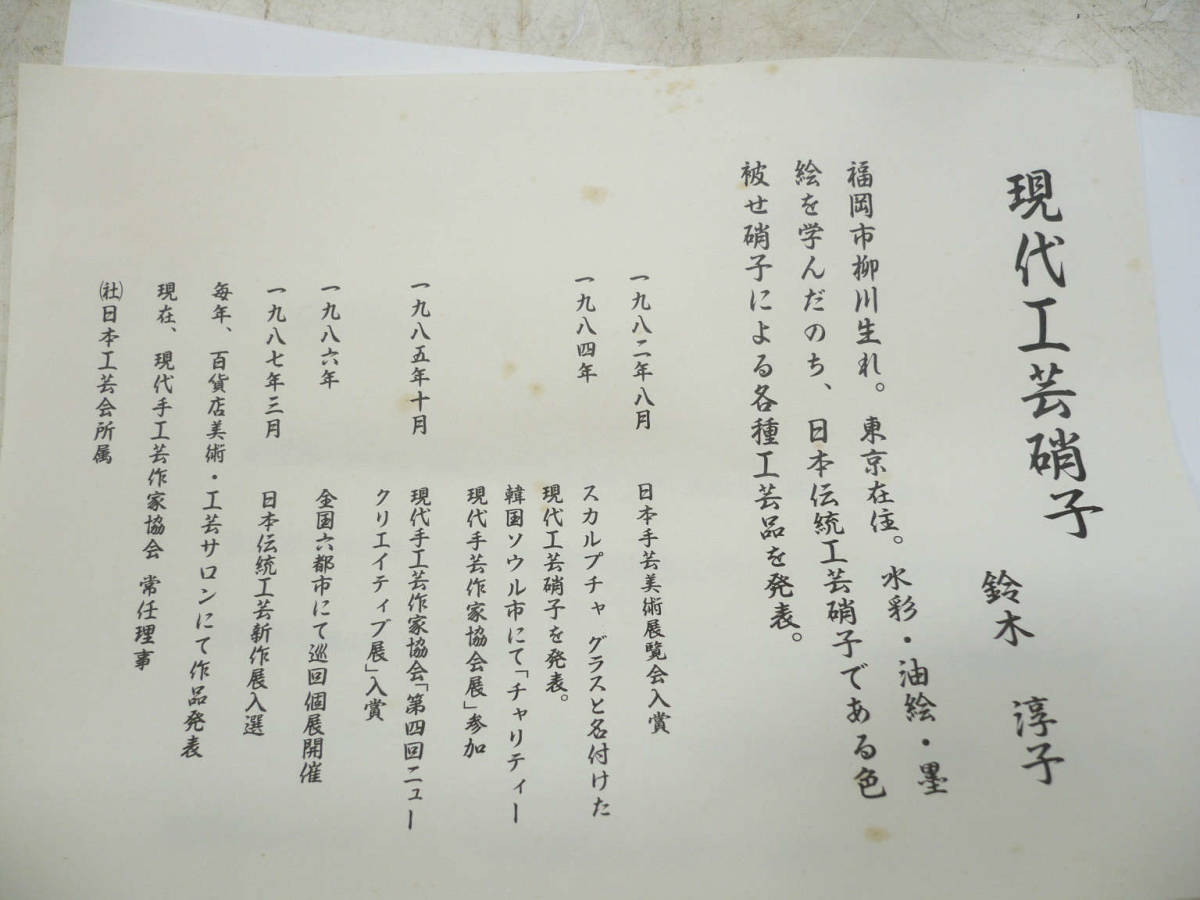 現代工芸硝子
鈴木 淳子
福岡市柳川生れ。東京在住。水彩・油絵・墨
絵を学んだのち、日本伝統工芸硝子である色
被せ硝子による各種工芸品を発表。
一九八二年八月 日本手芸美術展覧会入賞
一九八四年 スカルプチャグラスと名付けた
現代工芸硝子を発表。
韓国ソウル市にて「チャリティー
現代手芸作家協会展」参加
一九八五年十月 現代手工芸作家協会「第四回ニュー
クリエイティブ展」入賞
一九八六年 全国六都市にて巡回個展開催
一九八七年三月 日本伝統工芸新作展入選
毎年、百貨店美術・工芸サロンにて作品発表
現在、現代手工芸作家協会 常任理事
㈳日本工芸会所属